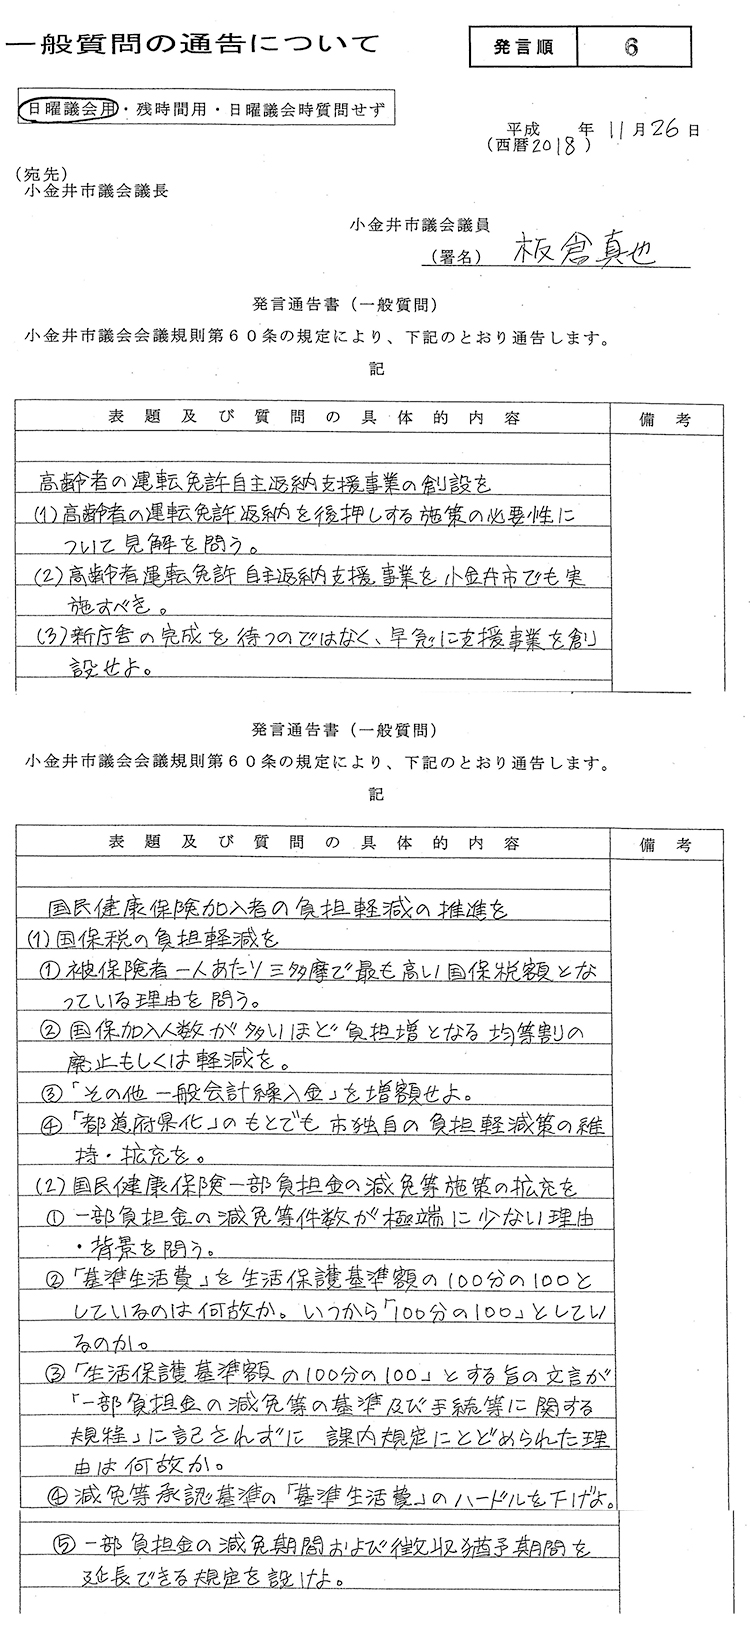 一般質問の通告について
発言順 6
日曜議会用・残時間用・日曜議会時質問せず
平成 年 11月26日
(西暦2018)
(宛先)
小金井市議会議長
小金井市議会議員
(署名) 板倉真也
発言通告書(一般質問)
小金井市議会会議規則第60条の規定により、下記のとおり通告します。
記
表題及び質問の具体的内容 備考
高齢者の運転免許自主返納支援事業の創設を
(1)高齢者の運転免許返納を後押しする施策の必要性に
ついて見解を問う。
(2)高齢者運転免許自主返納支援事業を小金井市でも実
施すべき。
(3)新庁舎の完成を待つのではなく、早急に支援事業を創
設せよ。
発言通告書(一般質問)
小金井市議会会議規則第60条の規定により、下記のとおり通告します。
記
表題及び質問の具体的内容 備考
国民健康保険加入者の負担軽減の推進を
(1)国保税の負担軽減を
①被保険者一人あたり三多摩で最も高い国保税額とな
っている理由を問う。
②国保加入人数が多いほど負担増となる均等割の
廃止もしくは軽減を。
③「その他一般会計繰入金」を増額せよ。
④「都道府県化」のもとでも市独自の負担軽減策の維
持・拡充を。
(2)国民健康保険一部負担金の減免等施策の拡充を
①一部負担金の減免等件数が極端に少ない理由
・背景を問う。
②「基準生活費」を生活保護基準額の100分の100と
しているのは何故か。いつから「100分の100」としてい
るのか。
③「生活保護基準額の100分の100」とする旨の文言が
「一部負担金の減免等の基準及び手続等に関する
規程」に記されずに 課内規定にとどめられた理
由は何故か。
④減免等承認基準の「基準生活費」のハードルを下げよ。
⑤一部負担金の減免期間および徴収猶予期間を
延長できる規定を設けよ。